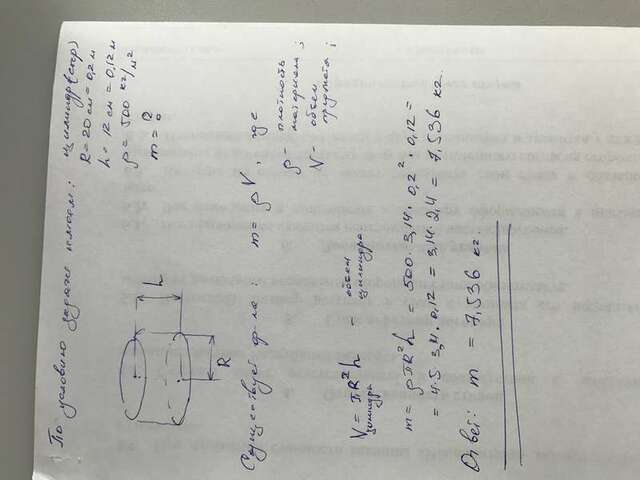 По условию задачи имеем: цилиндр (сыр)
R = 20 см = 0,2 м
h = 12 см = 0,12 м
ρ = 500 кг/м²
m = ?
h
R
Существует ф-ла: m = ρV, где
ρ - плотность
материала;
V - объем
предмета;
V = πR²h - объем
цилиндра цилиндра.
m = ρπR²h = 500·3,14·0,2²·0,12 =
= 4·5·3,4·0,12 = 3,14·2,4 = 7,536 кг.
Ответ: m = 7,536 кг.